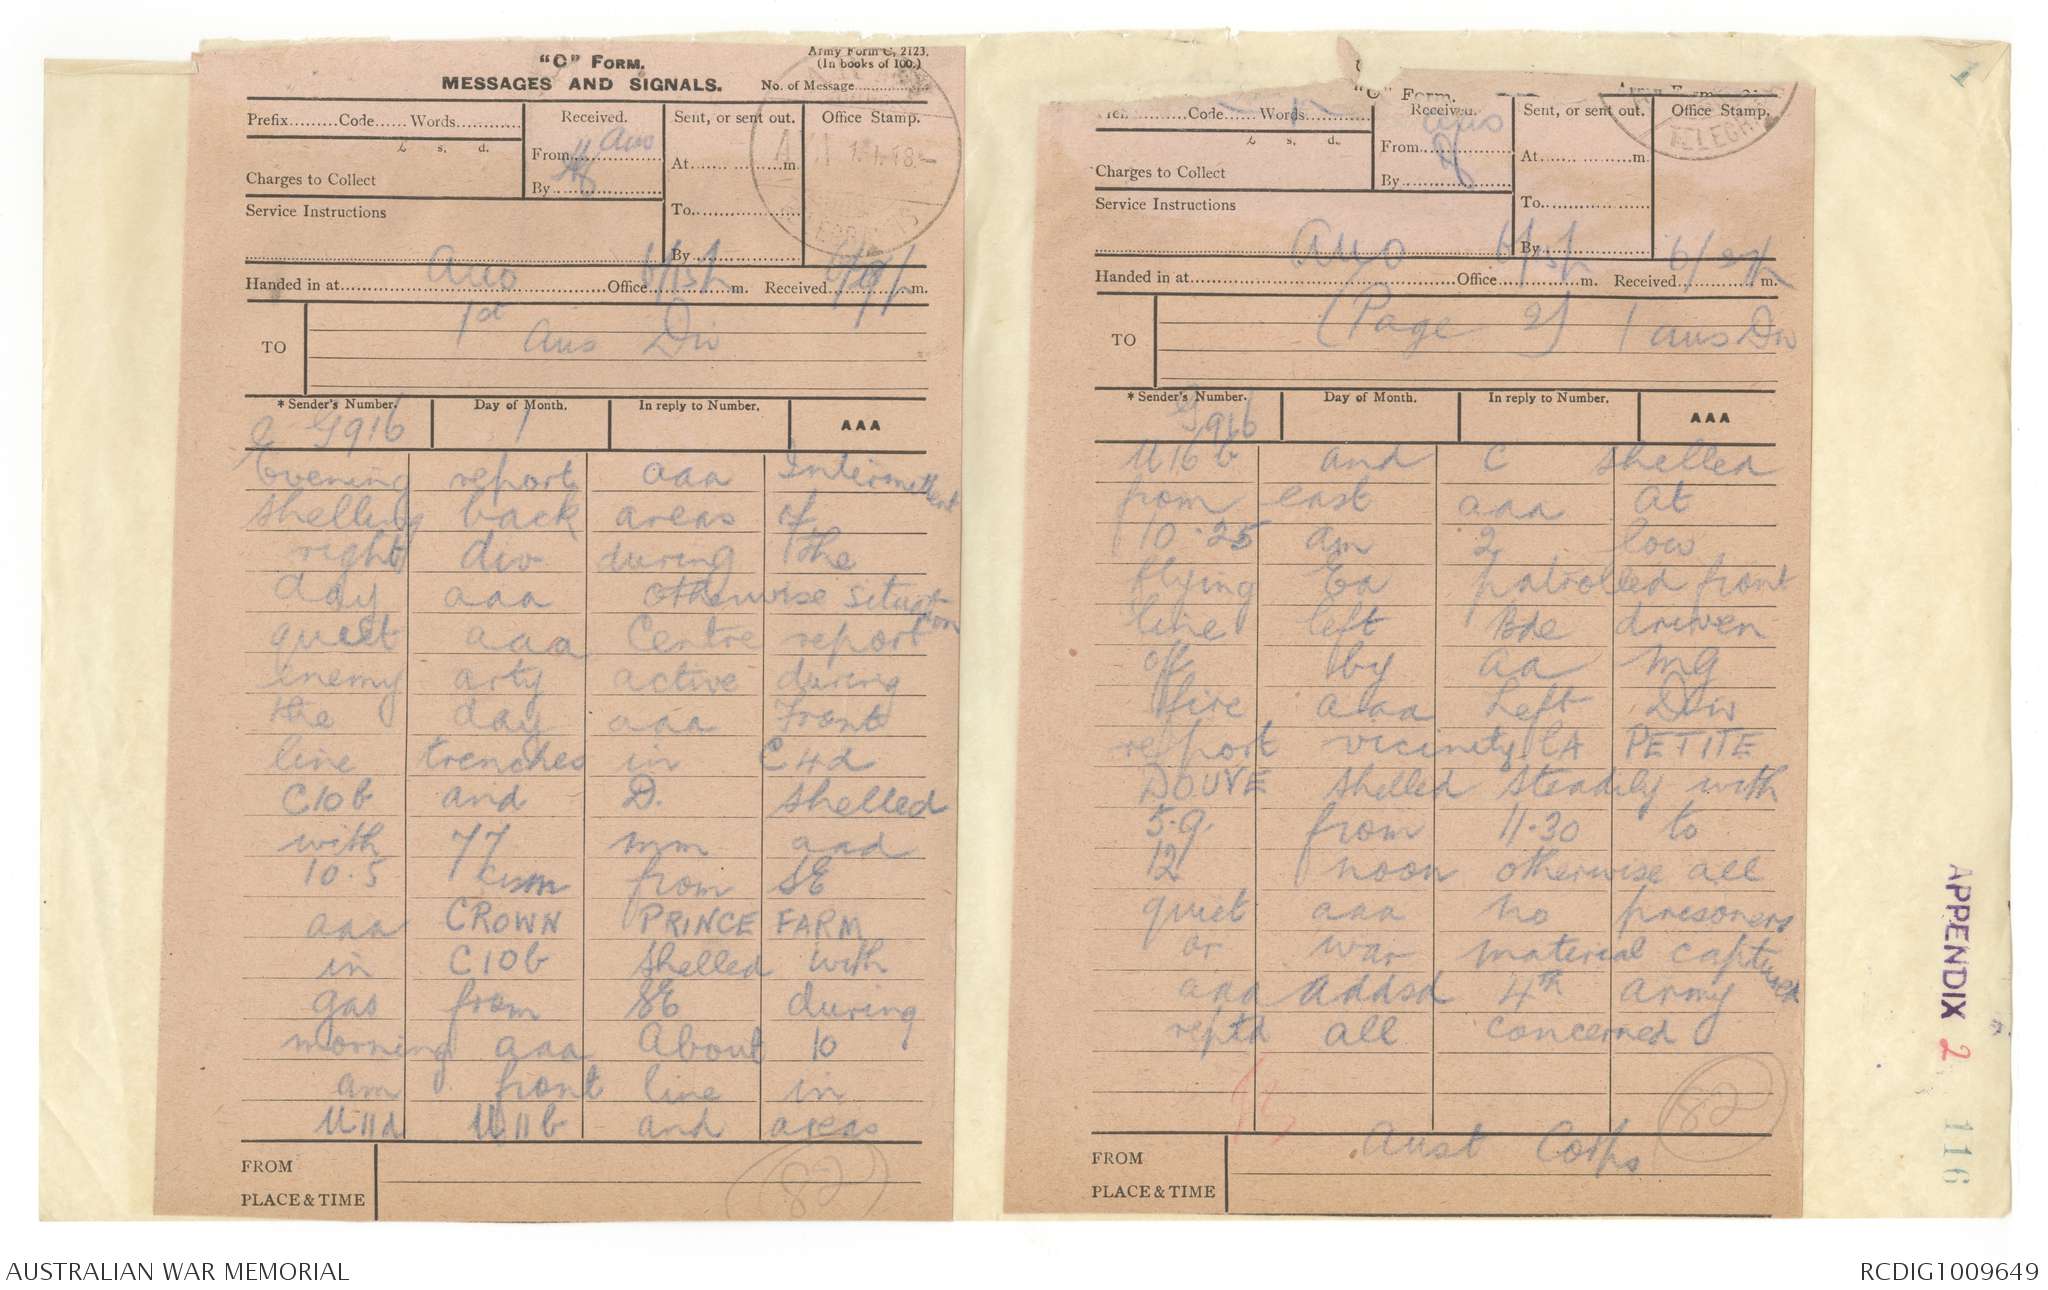 "C" FORM.
MESSAGES AND SIGNALS.
Army Form C, 2123.
(In books of 100.)
No. of Message
Prefix Code Words
£ s. d.
Charges to Collect
Service Instructions
Received.
From Aus
By
Sent, or sent out.
At m.
To
By
Office Stamp.
Handed in at Auo Office m. Received m.
TO
1st Aus Div
* Sender's Number.
G916
Day of Month.
1
In reply to Number.
AAA
Evening report aaa Intermittent
shelling back areas of
right div during the
day aaa otherwise situation
quiet aaa Centre report
enemy arty active during
the day aaa Front
line trenches in C4d
C10b and D. shelled
with 77 mm and
10.5 cm from SE
aaa CROWN PRINCE FARM
in C10b shelled with
gas from SE during
morning aaa About 10
am front line in
U11d U11b and areas
FROM
PLACE & TIME
82
"C" Form.
Code Words
£ s. d.
Charges to Collect
Service Instructions
Received.
From Aus
By
Sent, or sent out.
At m.
To
By
Office Stamp.
TELEGR
Handed in at Auo Office m. Received m.
TO
(Page 2) 1 Aus Div
* Sender's Number.
G916
Day of Month.
In reply to Number.
AAA
U16b and C shelled
from east aaa at
10.25 am 2 low
flying Ea patrolled front
line left Bde driven
off by aa mg
fire aaa Left Div
report vicinity LA PETITE
DOUVE shelled steadily with
5.9. from 11.30 to
12 noon otherwise all
quiet aaa no prisoners
or war material captured
aaa addsd 4th army
reptd all concerned
82
FROM
PLACE & TIME
Aust Corps
APPENDIX 2
116
AUSTRALIAN WAR MEMORIAL
RCDIG1009649